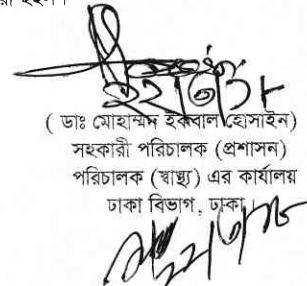 ( ডাঃ মোহাম্মদ ইকবাল হোসাইন)
সহকারী পরিচালক (প্রশাসন)
পরিচালক (স্বাস্থ্য) এর কার্যালয়
ঢাকা বিভাগ, ঢাকা